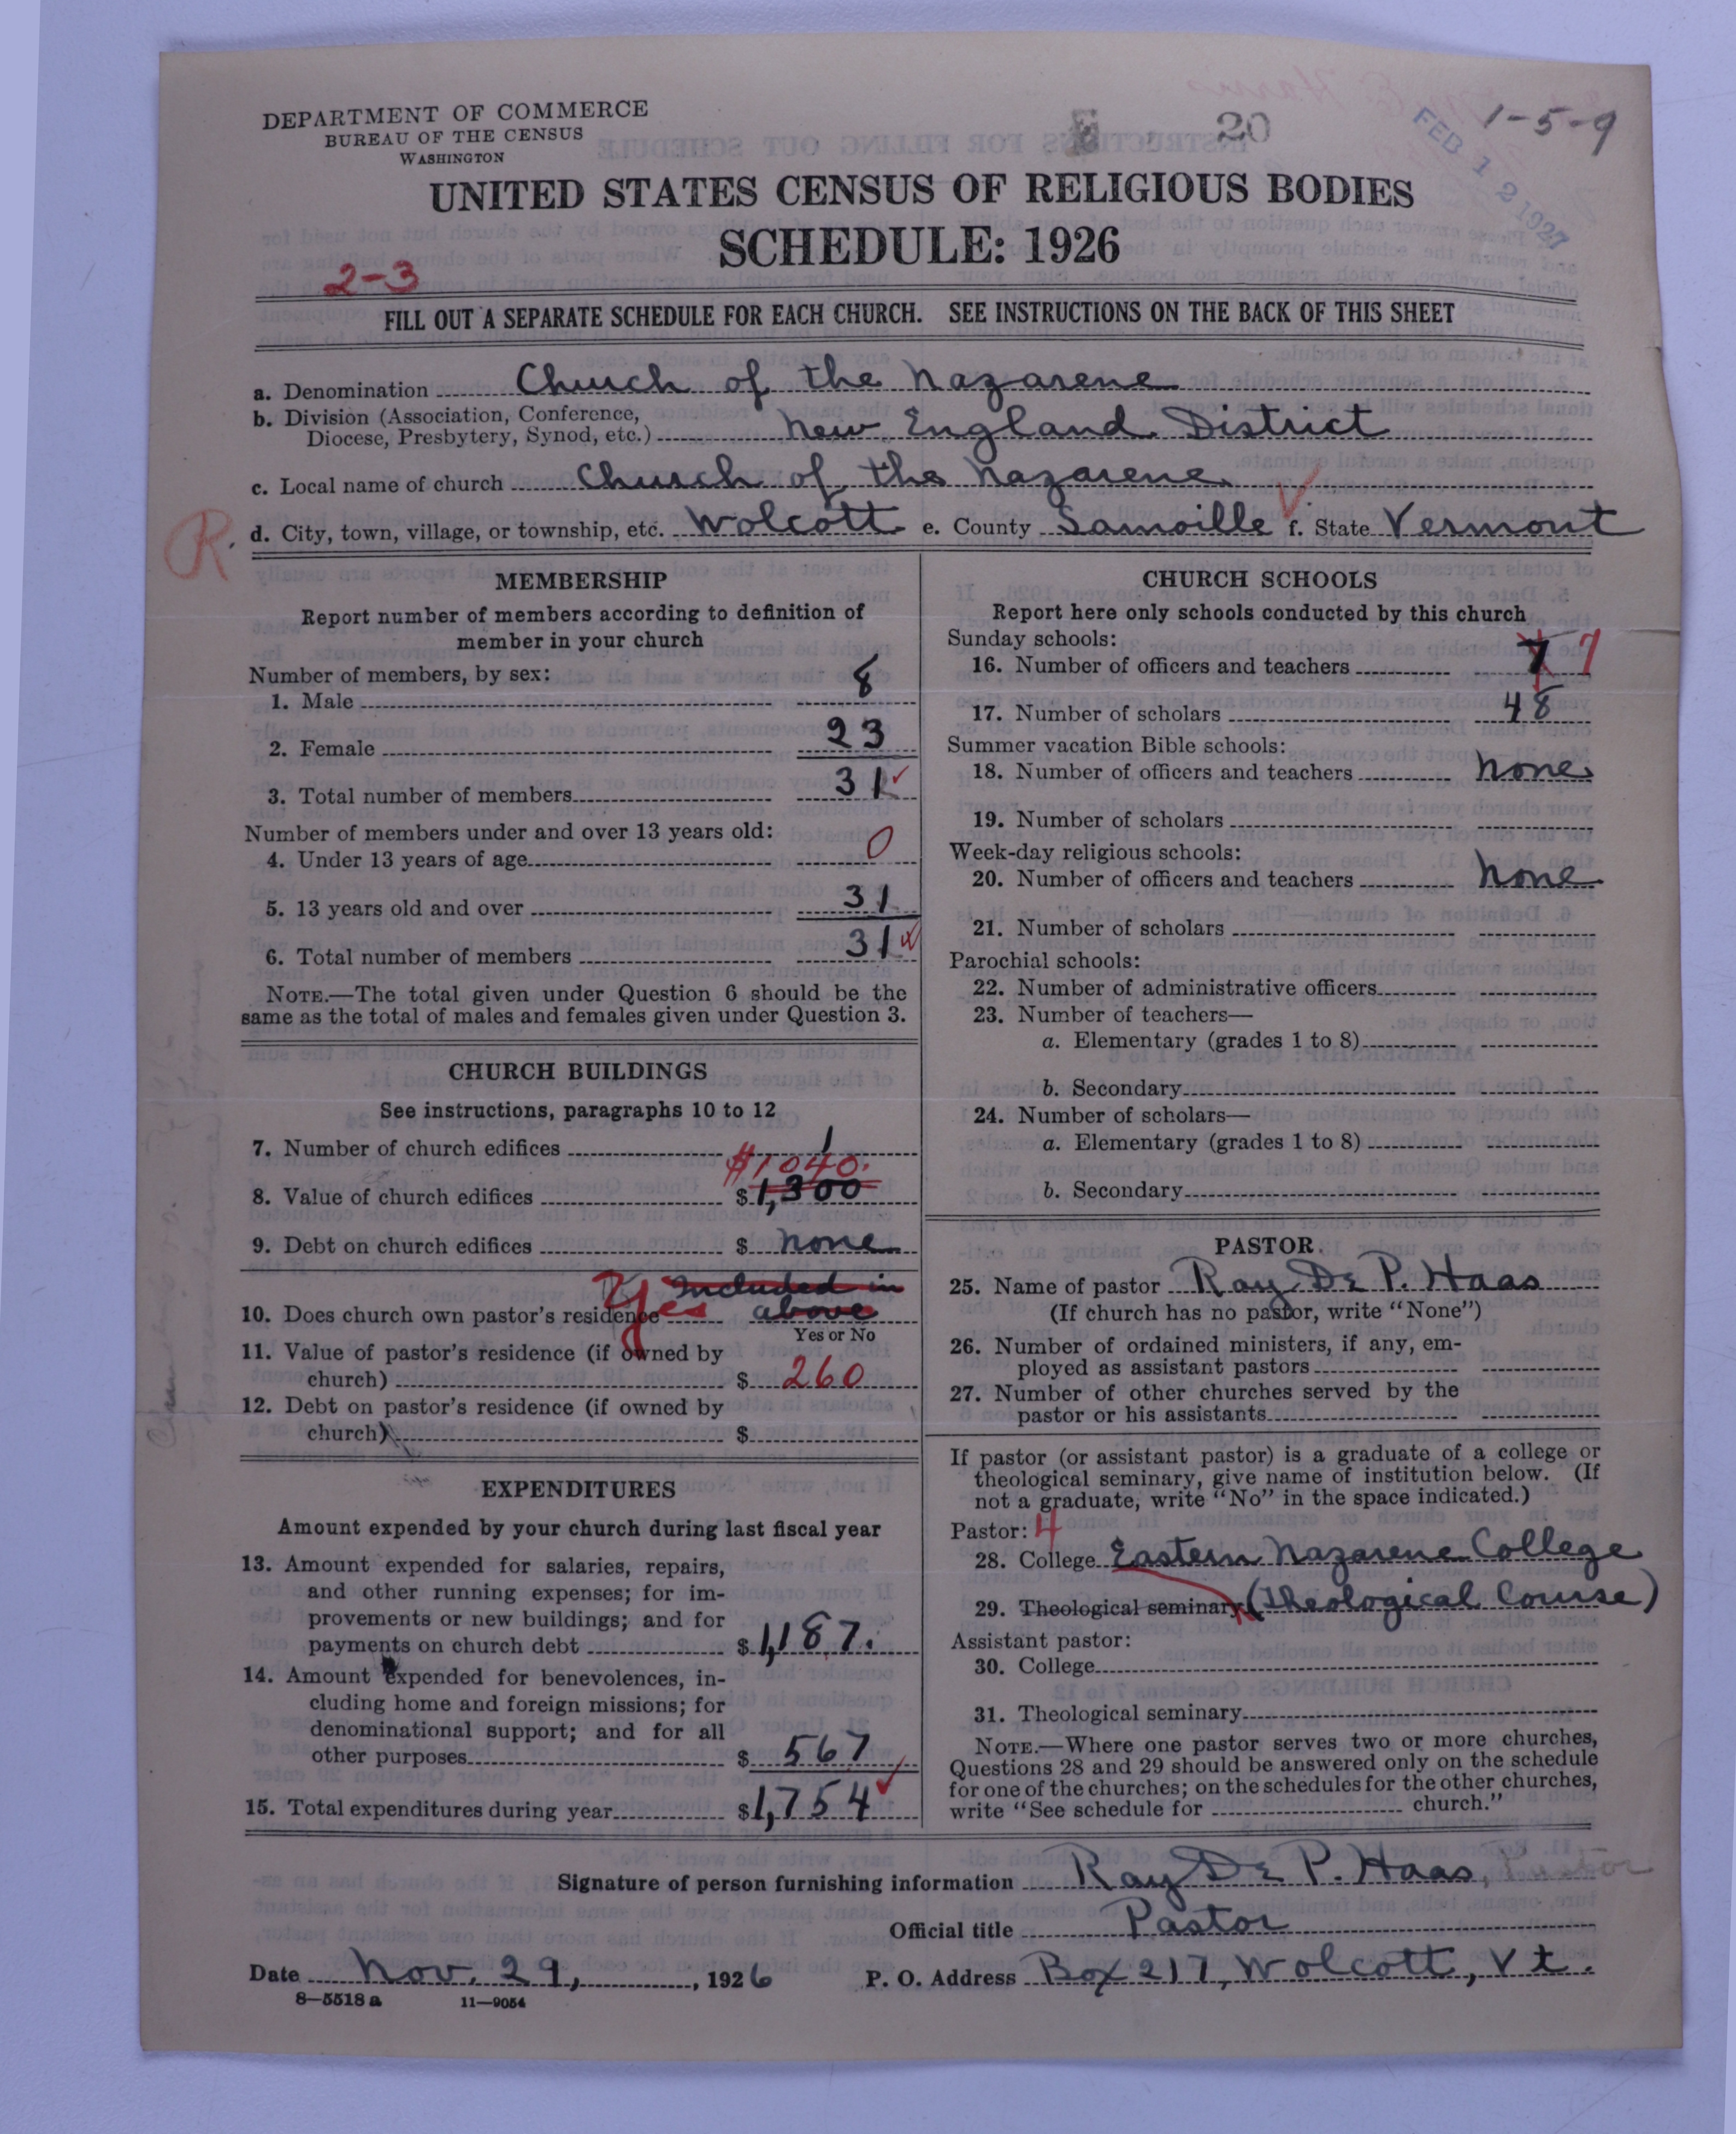 DEPARTMENT OF COMMERCE
BUREAU OF THE CENSUS
WASHINGTON
20
1-5-9
FEB 12 1927
UNITED STATES CENSUS OF RELIGIOUS BODIES
SCHEDULE: 1926
2-3
FILL OUT A SEPARATE SCHEDULE FOR EACH CHURCH. SEE INSTRUCTIONS ON THE BACK OF THIS SHEET
a. Denomination Church of the Nazarene
b. Division (Association, Conference,
Diocese, Presbytery, Synod, etc.) New England District
c. Local name of church Church of the Nazarene
R. d. City, town, village, or township, etc. Wolcott e. County Lamoille f. State Vermont
MEMBERSHIP
Report number of members according to definition of
member in your church
Number of members, by sex:
1. Male 8
2. Female 23
3. Total number of members 31
Number of members under and over 13 years old:
4. Under 13 years of age 0
5. 13 years old and over 31
6. Total number of members 31
NOTE.—The total given under Question 6 should be the
same as the total of males and females given under Question 3.
CHURCH BUILDINGS
See instructions, paragraphs 10 to 12
7. Number of church edifices 1
$1040.
8. Value of church edifices $1,300
9. Debt on church edifices $ None
Included in
10. Does church own pastor's residence Yes above
Yes or No
11. Value of pastor's residence (if owned by
church) $ 260
12. Debt on pastor's residence (if owned by
church) $
EXPENDITURES
Amount expended by your church during last fiscal year
13. Amount expended for salaries, repairs,
and other running expenses; for im-
provements or new buildings; and for
payments on church debt $1,187.
14. Amount expended for benevolences, in-
cluding home and foreign missions; for
denominational support; and for all
other purposes $ 567
15. Total expenditures during year $1,754
CHURCH SCHOOLS
Report here only schools conducted by this church
Sunday schools:
16. Number of officers and teachers 7 7
17. Number of scholars 48
Summer vacation Bible schools:
18. Number of officers and teachers None
19. Number of scholars
Week-day religious schools:
20. Number of officers and teachers None
21. Number of scholars
Parochial schools:
22. Number of administrative officers
23. Number of teachers—
a. Elementary (grades 1 to 8)
b. Secondary
24. Number of scholars—
a. Elementary (grades 1 to 8)
b. Secondary
PASTOR
25. Name of pastor Ray De P. Haas
(If church has no pastor, write "None")
26. Number of ordained ministers, if any, em-
ployed as assistant pastors
27. Number of other churches served by the
pastor or his assistants
If pastor (or assistant pastor) is a graduate of a college or
theological seminary, give name of institution below. (If
not a graduate, write "No" in the space indicated.)
Pastor: 4
28. College Eastern Nazarene College
29. Theological seminary (Theological Course)
Assistant pastor:
30. College
31. Theological seminary
NOTE.—Where one pastor serves two or more churches,
Questions 28 and 29 should be answered only on the schedule
for one of the churches; on the schedules for the other churches,
write "See schedule for church."
Signature of person furnishing information Ray De P. Haas, Pastor
Official title Pastor
Date Nov. 29, 1926 P. O. Address Box 217, Wolcott, Vt.
8—5518 a 11—9054